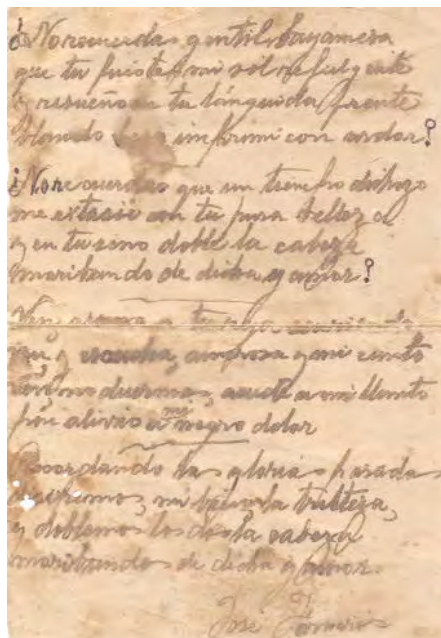 ¿No recuerdas gentil bayamesa
que tu fuistes mi sol refulgente
y risueño en tu lánguida frente
blando beso imprimí con ardor?
¿No recuerdas que un tiempo dichozo
me extasié con tu pura belleza
y en tu seno doblé la cabeza
moribundo de dicha y amor?
Ven asoma a tu reja
ven y escucha, amorosa y mi canto
ven no duermas, acude a mi llanto
pon alivio a mi negro dolor
Recordando las glorias pasadas
mi bien, la tristeza,
y doblemos los dos la cabeza
moribundos de dicha y amor.
José Fornaris